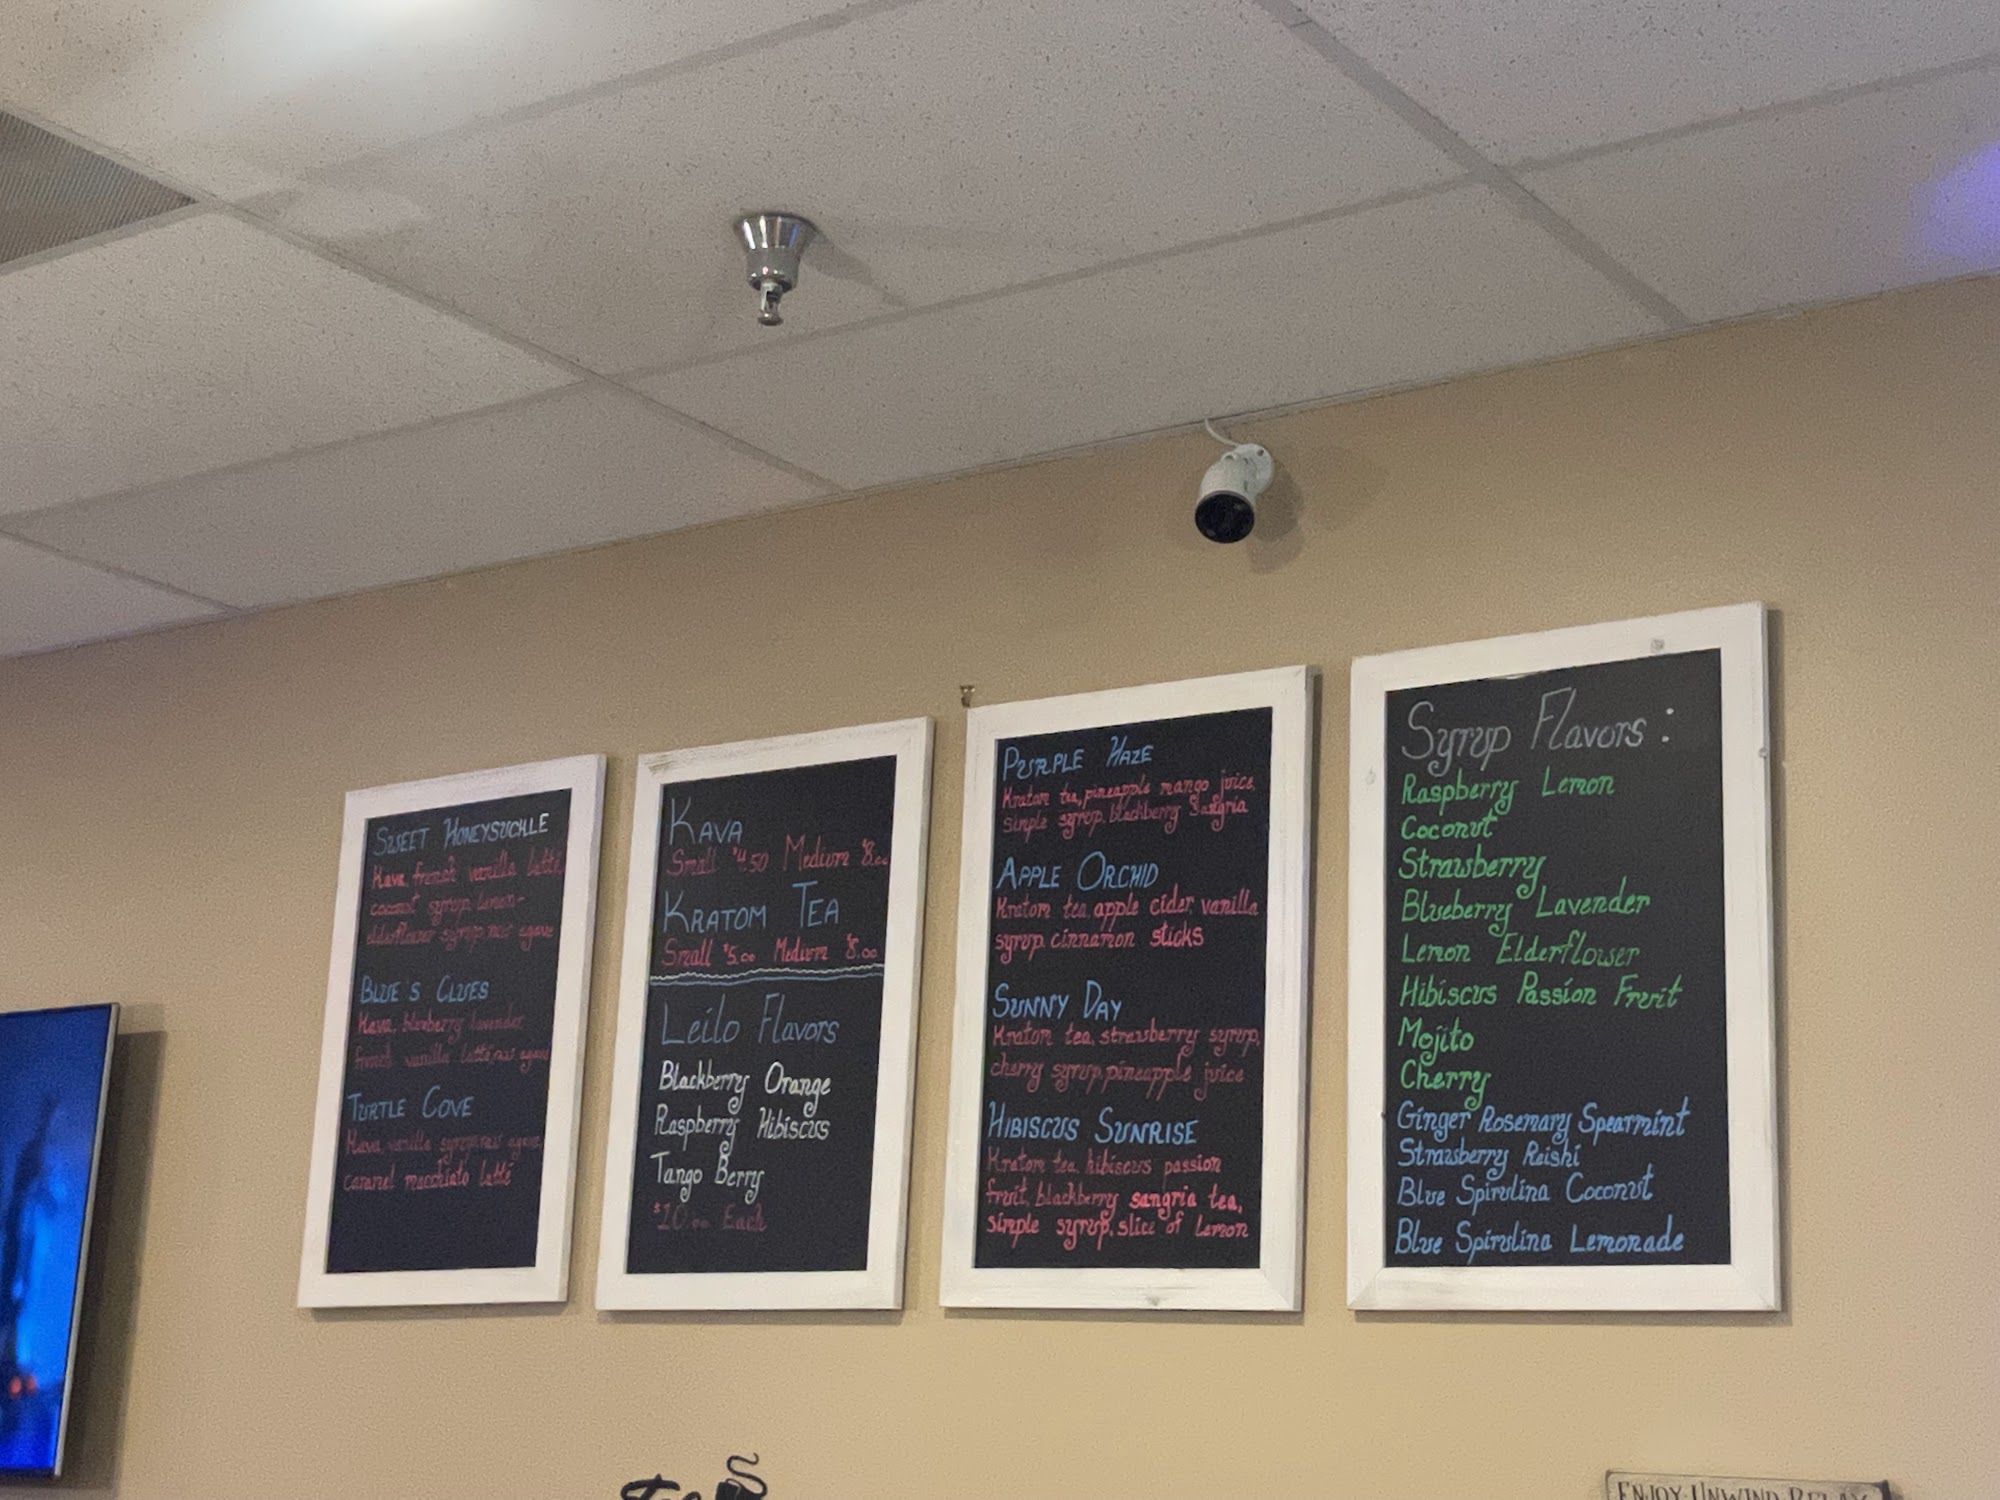 SWEET HONEYSUCKLE
Kava, french vanilla latté,
coconut syrup, lemon-
elderflower syrup, raw agave
BLUE'S CLUES
Kava, blueberry lavender
french vanilla latté, raw agave
TURTLE COVE
Kava, vanilla syrup, raw agave,
caramel macchiato latté
KAVA
Small $4.50 Medium $8.00
KRATOM TEA
Small $5.00 Medium $8.00
Leilo Flavors
Blackberry Orange
Raspberry Hibiscus
Tango Berry
$10.00 Each
PURPLE HAZE
Kratom tea, pineapple mango juice,
simple syrup, blackberry Sangria
APPLE ORCHID
Kratom tea, apple cider, vanilla
syrup, cinnamon sticks
SUNNY DAY
Kratom tea, strawberry syrup,
cherry syrup, pineapple juice
HIBISCUS SUNRISE
Kratom tea, hibiscus passion
fruit, blackberry sangria tea,
simple syrup, slice of lemon
Syrup Flavors:
Raspberry Lemon
Coconut
Strawberry
Blueberry Lavender
Lemon Elderflower
Hibiscus Passion Fruit
Mojito
Cherry
Ginger Rosemary Spearmint
Strawberry Reishi
Blue Spirulina Coconut
Blue Spirulina Lemonade
ENJOY·UNWIND·RELAX